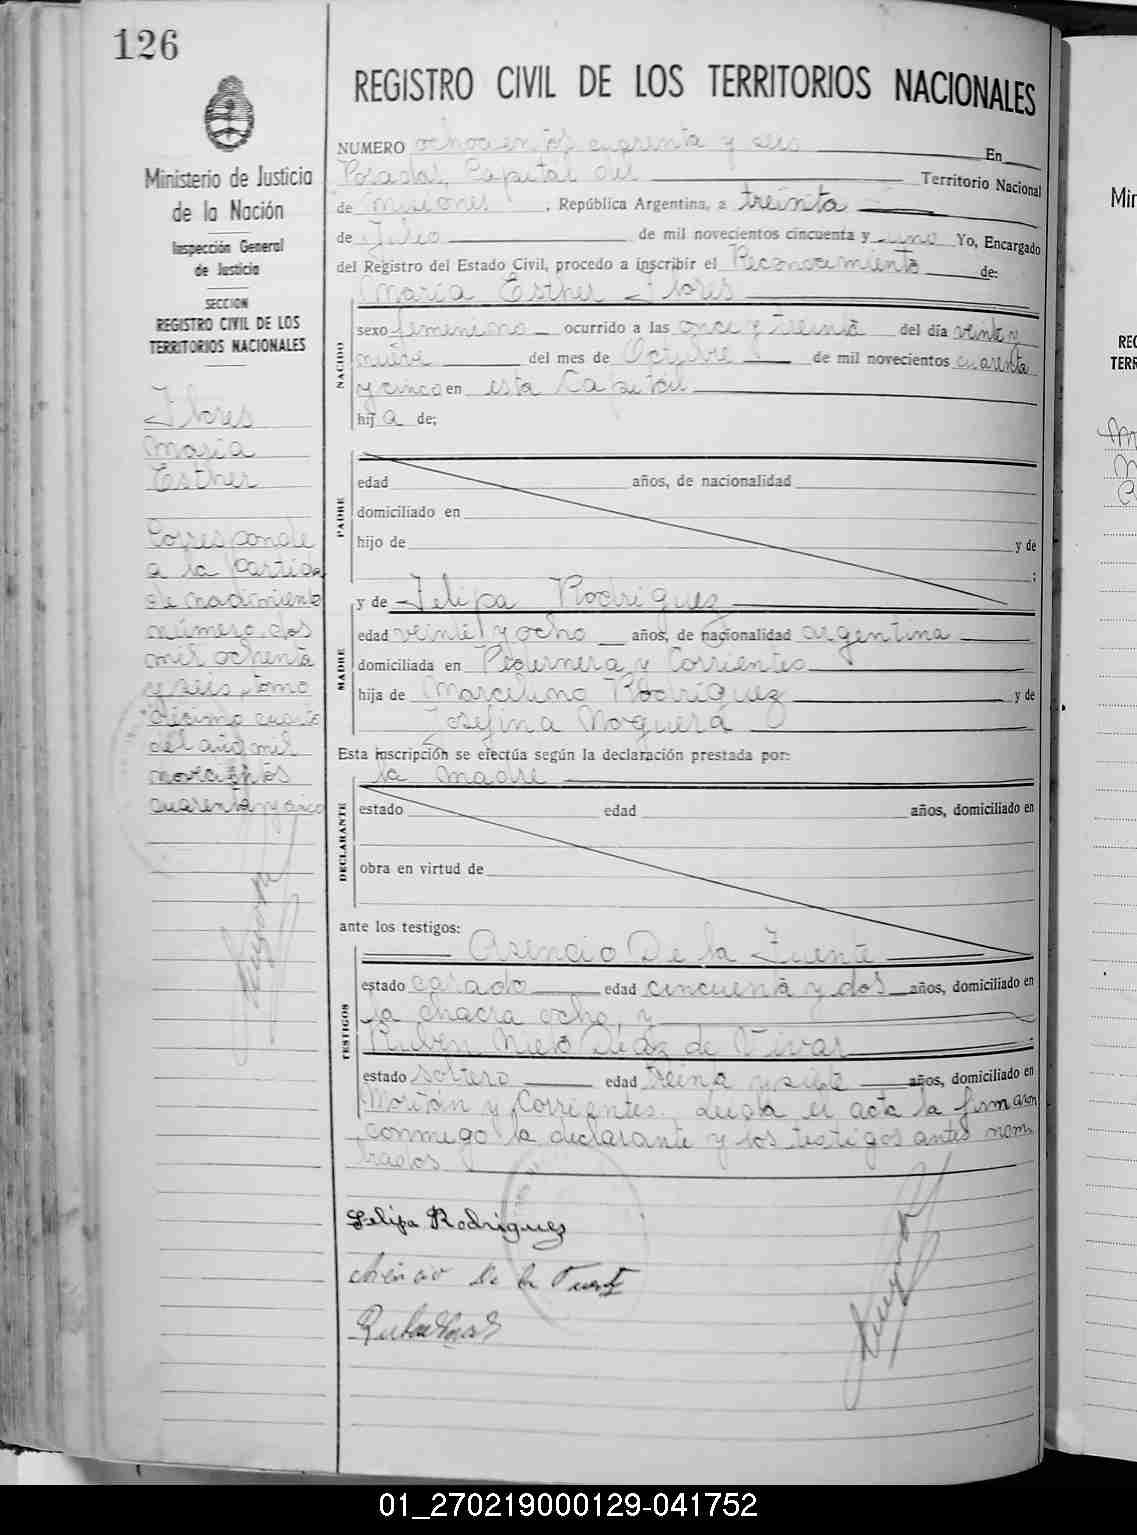 126
Ministerio de Justicia
de la Nación
Inspección General
de Justicia
SECCION
REGISTRO CIVIL DE LOS
TERRITORIOS NACIONALES
Flores
María
Esther
Corresponde
a la partida
de nacimiento
número dos
mil ochenta
y seis, tomo
décimo cuarto
del año mil
novecientos
cuarenta y cinco
REGISTRO CIVIL DE LOS TERRITORIOS NACIONALES
NUMERO ochocientos cuarenta y seis En
Posadas, Capital del Territorio Nacional
de Misiones, República Argentina, a treinta
de Julio de mil novecientos cincuenta y uno Yo, Encargado
del Registro del Estado Civil, procedo a inscribir el Reconocimiento de:
María Esther Flores
NACIDO
sexo femenino ocurrido a las once y treinta del día veinte y
nueve del mes de Octubre de mil novecientos cuarenta
y cinco en esta Capital
hija de;
PADRE
edad años, de nacionalidad
domiciliado en
hijo de y de
;
y de Felipa Rodriguez
MADRE
edad veinte y ocho años, de nacionalidad argentina
domiciliada en Pedernera y Corrientes
hija de Marcelino Rodríguez y de
Josefina Noguera
Esta inscripción se efectúa según la declaración prestada por:
la madre
DECLARANTE
estado edad años, domiciliado en
obra en virtud de
ante los testigos:
Asencio De la Fuente
TESTIGOS
estado casado edad cincuenta y dos años, domiciliado en
la chacra ocho, y
Ruben Nieto Diaz de Vivar
estado soltero edad treinta y siete años, domiciliado en
Morán y Corrientes. Leída el acta la firmaron
conmigo la declarante y los testigos antes nom
brados
Felipa Rodrigues
Asencio De la Fuente
Min
REG
TERR
01_270219000129-041752